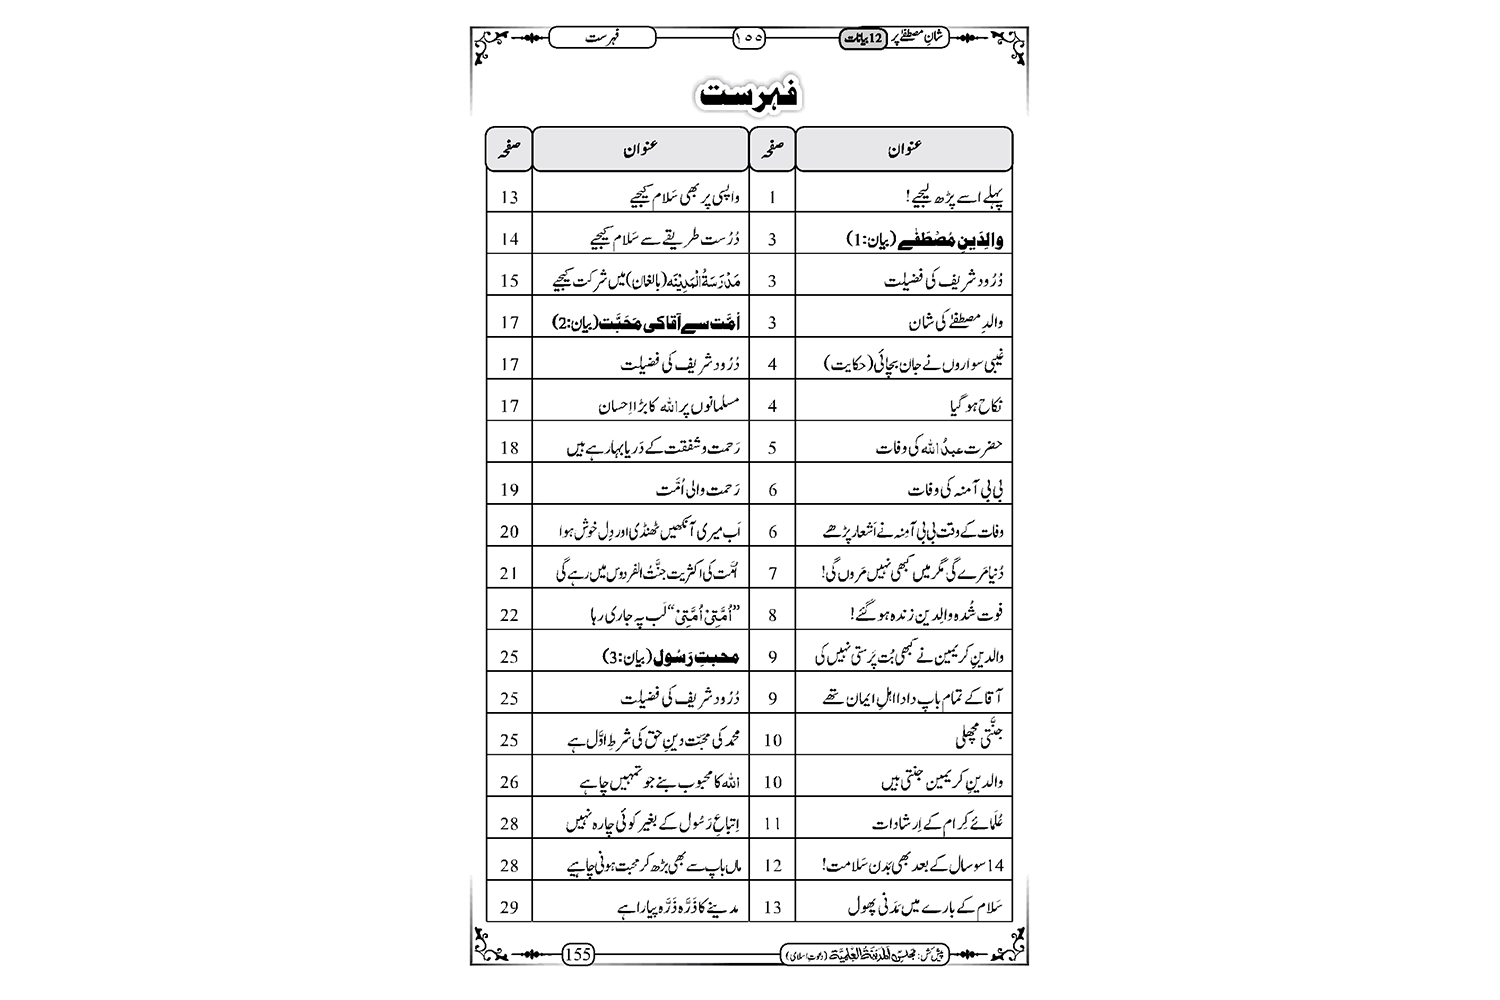 شانِ مصطفےٰ پر 12 بیانات ۱۵۵ فہرست
فہرست
عنوان صفحہ عنوان صفحہ
پہلے اسے پڑھ لیجیے! 1 واپسی پر بھی سَلام کیجیے 13
والِدَینِ مُصْطَفےٰ (بیان:1) 3 دُرُست طریقے سے سَلام کیجیے 14
دُرُود شریف کی فضیلت 3 مَدْرَسَۃُ الْمَدِیْنَہ (بالغان) میں شرکت کیجیے 15
والدِ مصطفےٰ کی شان 3 اُمَّت سے آقا کی مَحَبَّت (بیان:2) 17
غیبی سواروں نے جان بچائی (حکایت) 4 دُرُود شریف کی فضیلت 17
نکاح ہو گیا 4 مسلمانوں پر اللہ کا بڑا اِحسان 17
حضرت عبدُ اللہ کی وفات 5 رَحمت و شفقت کے دَریا بہا رہے ہیں 18
بی بی آمنہ کی وفات 6 رَحمت والی اُمَّت 19
وفات کے وقت بی بی آمِنہ نے اَشعار پڑھے 6 اَب میری آنکھیں ٹھنڈی اور دِل خوش ہوا 20
دُنیا مَرے گی مگر میں کبھی نہیں مَروں گی! 7 اُمَّت کی اکثریت جنَّتُ الفردوس میں رہے گی 21
فوت شُدہ والِدین زندہ ہو گئے! 8 ”اُمَّتِیْ اُمَّتِیْ“ لَب پہ جاری رہا 22
والدینِ کریمین نے کبھی بُت پَرستی نہیں کی 9 محبتِ رَسُول (بیان:3) 25
آقا کے تمام باپ دادا اہلِ ایمان تھے 9 دُرُود شریف کی فضیلت 25
جنَّتی مچھلی 10 محمد کی محبّت دینِ حق کی شرطِ اوّل ہے 25
والدینِ کریمین جنتی ہیں 10 اللہ کا محبوب بنے جو تمہیں چاہے 26
عُلَمائے کِرام کے اِرشادات 11 اِتباعِ رَسُول کے بغیر کوئی چارہ نہیں 28
14 سو سال کے بعد بھی بَدن سَلامت! 12 ماں باپ سے بھی بڑھ کر محبت ہونی چاہیے 28
سَلام کے بارے میں مَدَنی پھول 13 مدینے کا ذَرَّہ ذَرَّہ پیارا ہے 29
پیش کش: مجلس اَلْمَدِیْنَۃُ الْعِلْمِیَّۃ (دعوتِ اسلامی) 155